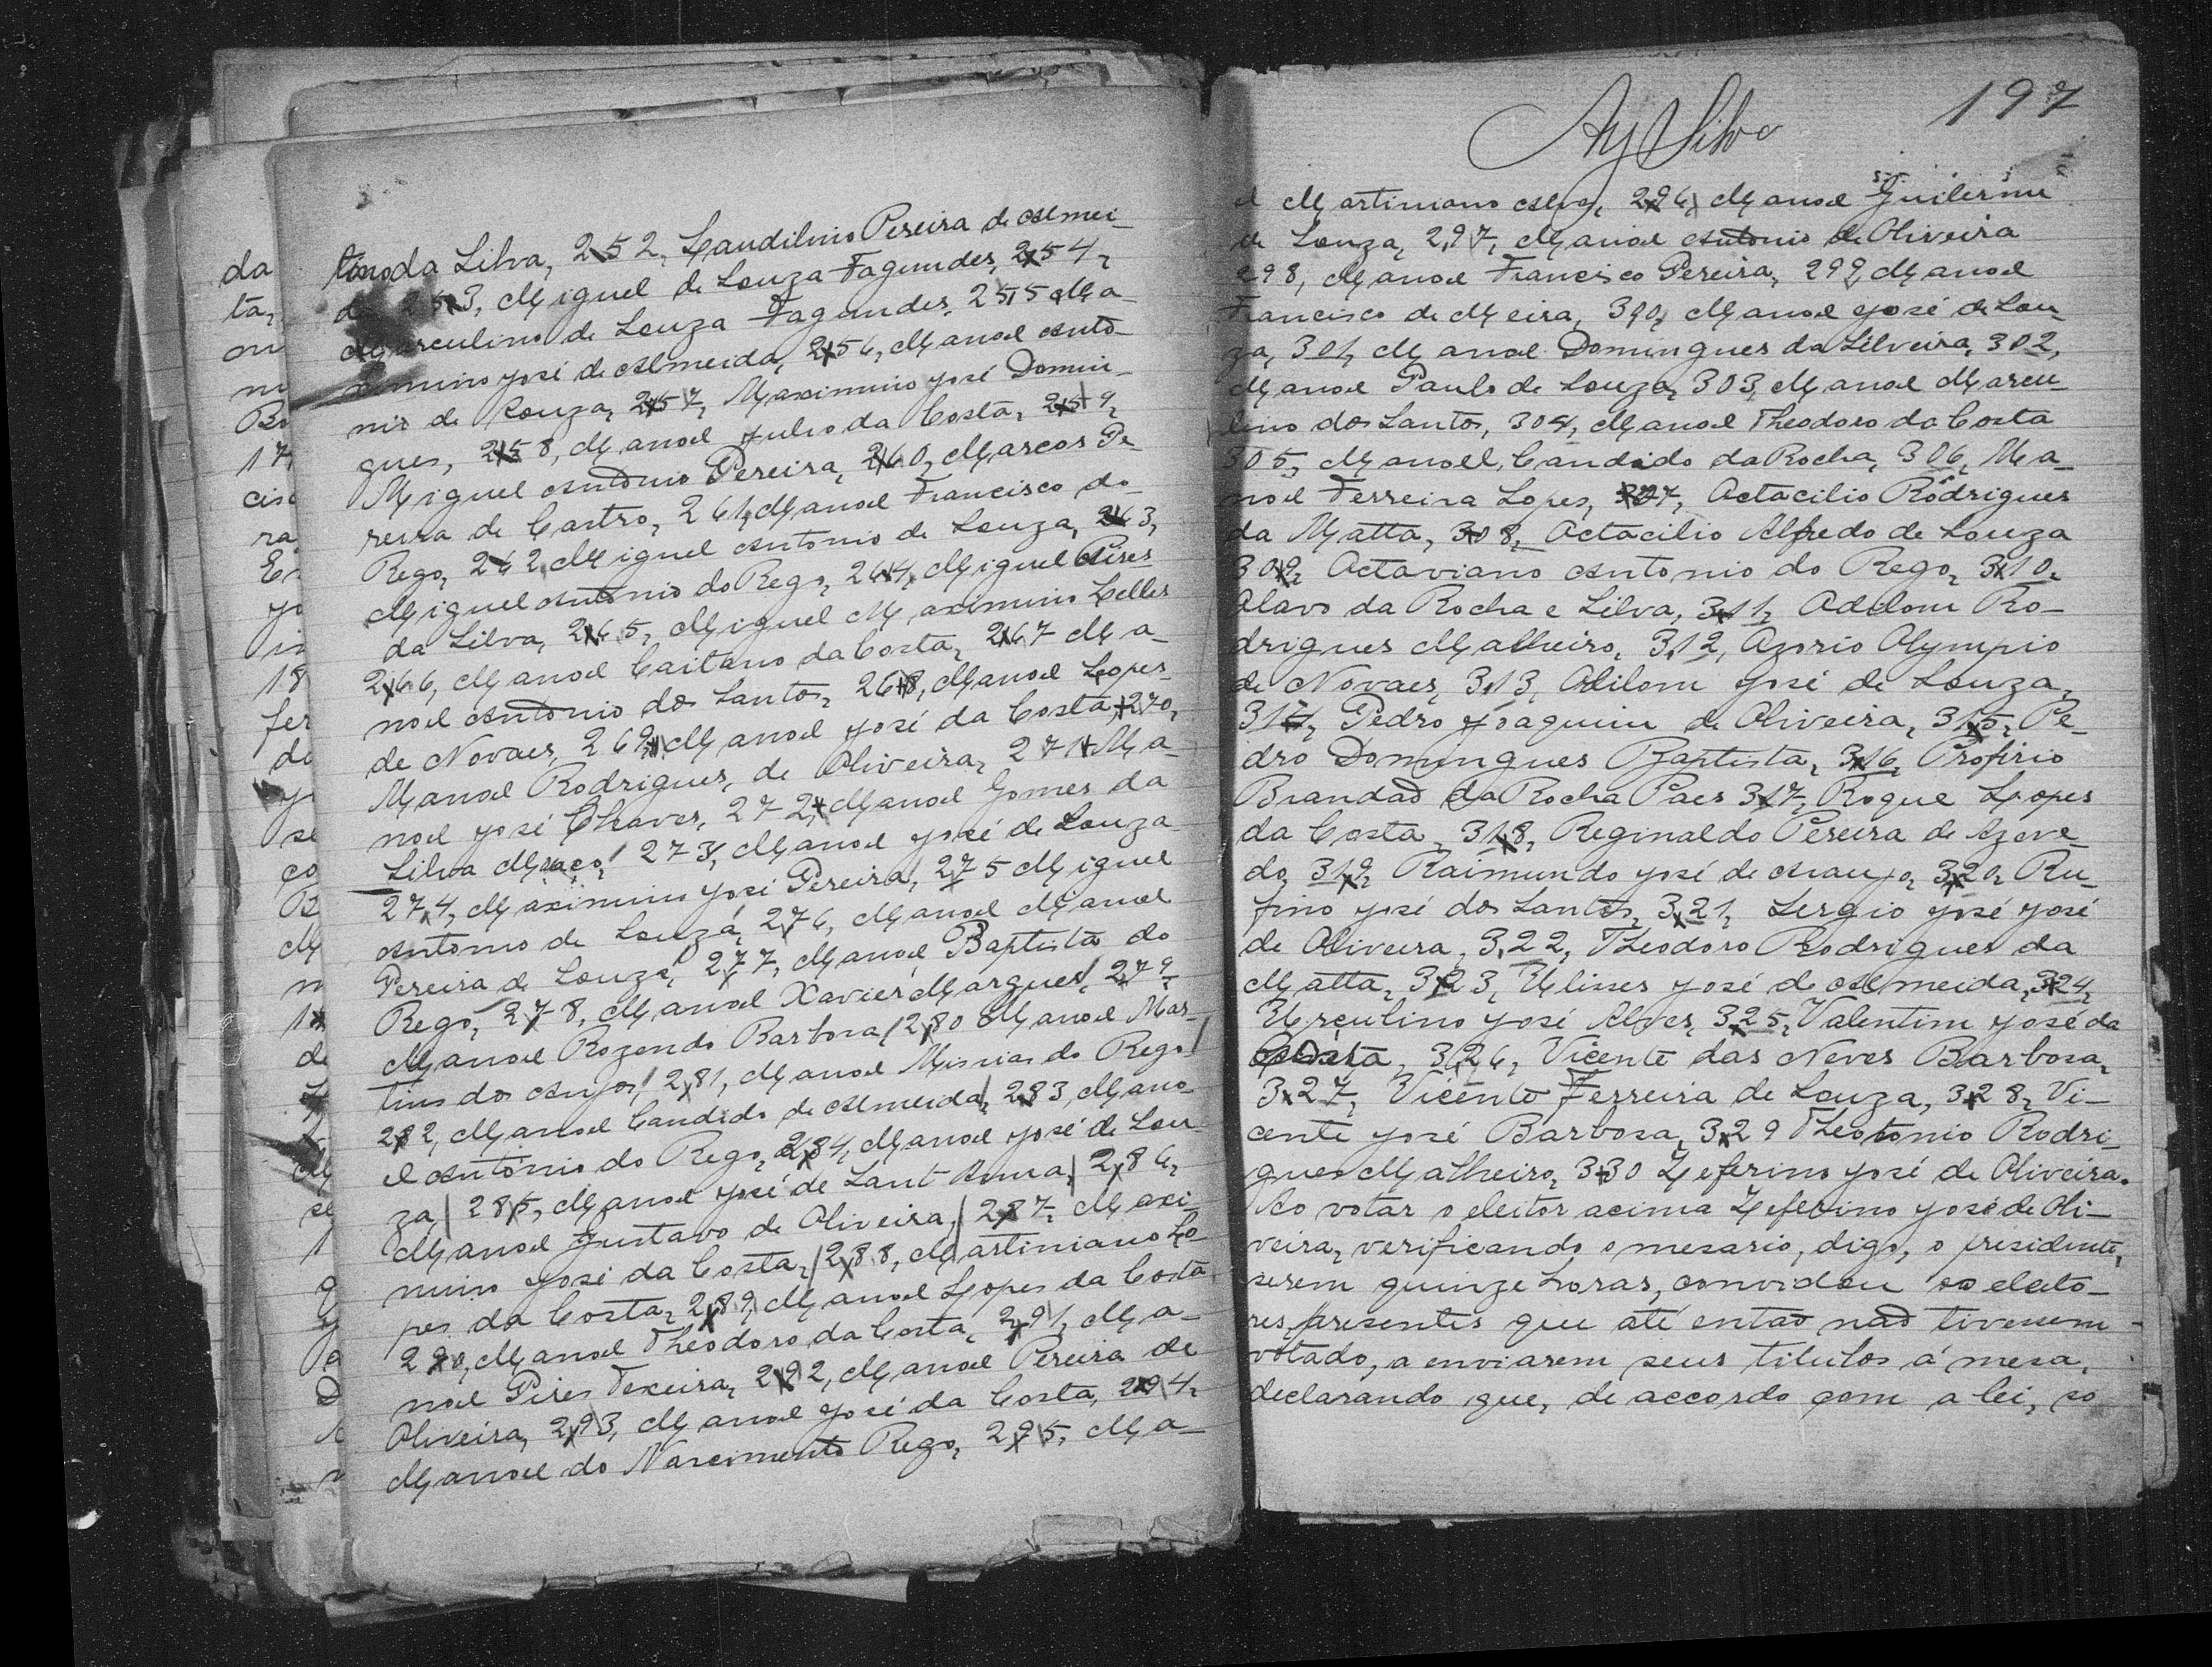 tino da Silva, 252, Laudilino Pereira de Almei-
da 253, Miguel de Souza Fagundes, 254,
Marculino de Souza Fagundes, 255 Ma-
ximino José de Almeida, 256, Manoel Anto-
nio de Souza, 257, Maximino José Domin-
gues, 258, Manoel Julio da Costa, 259,
Miguel Antonio Pereira, 260, Marcos Pe-
reira de Castro, 261, Manoel Francisco do
Rego, 262, Miguel Antonio de Souza, 263,
Miguel Antonio do Rego, 264, Miguel Pires
da Silva, 265, Miguel Maximino Telles
266, Manoel Caitano da Costa, 267 Ma-
noel Antonio dos Santos, 268, Manoel Lopes
de Novaes, 269, Manoel José da Costa, 270,
Manoel Rodrigues, de Oliveira, 271 Ma-
noel José Chaves, 272, Manoel Gomes da
Silva 273, Manoel José de Souza
274, Maximino José Pereira, 275 Miguel
Antonio de Souza, 276, Manoel Manoel
Pereira de Souza, 277, Manoel Baptista do
Rego, 278, Manoel Xavier Marques, 279,
Manoel Rozendo Barbosa, 280 Manoel Mar-
tins dos Anjos, 281, Manoel Messias do Rego
282, Manoel Candido de Almeida, 283, Mano-
el Antonio do Rego, 284, Manoel José de Sou-
za, 285, Manoel José de Sant Anna, 286,
Manoel Gustavo de Oliveira, 287, Maxi-
mino José da Costa, 288, Martiniano Lo-
pes da Costa, 289, Manoel Lopes da Costa
290, Manoel Theodoro da Costa, 291, Ma-
noel Pires Texeira, 292, Manoel Pereira de
Oliveira, 293, Manoel José da Costa, 294,
Manoel do Nascimento Rego, 295, Ma-
197
Ay Silva
el Martiniano Alves, 296, Manoel Guilerme
de Souza, 297, Manoel Antonio de Oliveira
298, Manoel Francisco Pereira, 299, Manoel
Francisco de Meira, 300, Manoel José de Sou-
za, 301, Manoel Domingues da Silveira, 302,
Manoel Paulo de Souza, 303, Manoel Marcu-
lino dos Santos, 304, Manoel Theodoro da Costa
305, Manoel Candido da Rocha, 306, Ma-
noel Ferreira Lopes, 307, Actacilio Rodrigues
da Matta, 308, Octacilio Alfredo de Souza
309, Octaviano Antonio do Rego, 310,
Olavo da Rocha e Silva, 311, Odilom Ro-
drigues Malheiro, 312, Ozorio Olympio
de Novaes, 313, Odilom José de Souza,
314, Pedro Joaquim de Oliveira, 315, Pe-
dro Domingues Baptista, 316, Profirio
Brandão da Rocha Paes 317, Roque Lopes
da Costa, 318, Reginaldo Pereira de Azeve-
do, 319, Raimundo José de Araujo, 320, Ru-
fino José dos Santos, 321, Sergio José José
de Oliveira, 322, Theodoro Rodrigues da
Matta, 323, Ulisses José de Almeida, 324,
Urculino José Alves, 325, Valentim José da
Costa, 326, Vicente das Neves Barbosa,
327, Vicente Ferreira de Souza, 328, Vi-
cente José Barbosa, 329 Theotonio Rodri-
gues Malheiro, 330 Zeferino José de Oliveira.
Ao votar o eleitor acima Zeferino José de Oli-
veira, verificando o mesario, digo, o presidente,
serem quinze horas, convidou os eleito-
res, presentes que até então não tivessem
votado, a enviarem seus titulos á mesa,
declarando que, de accordo com a lei, so